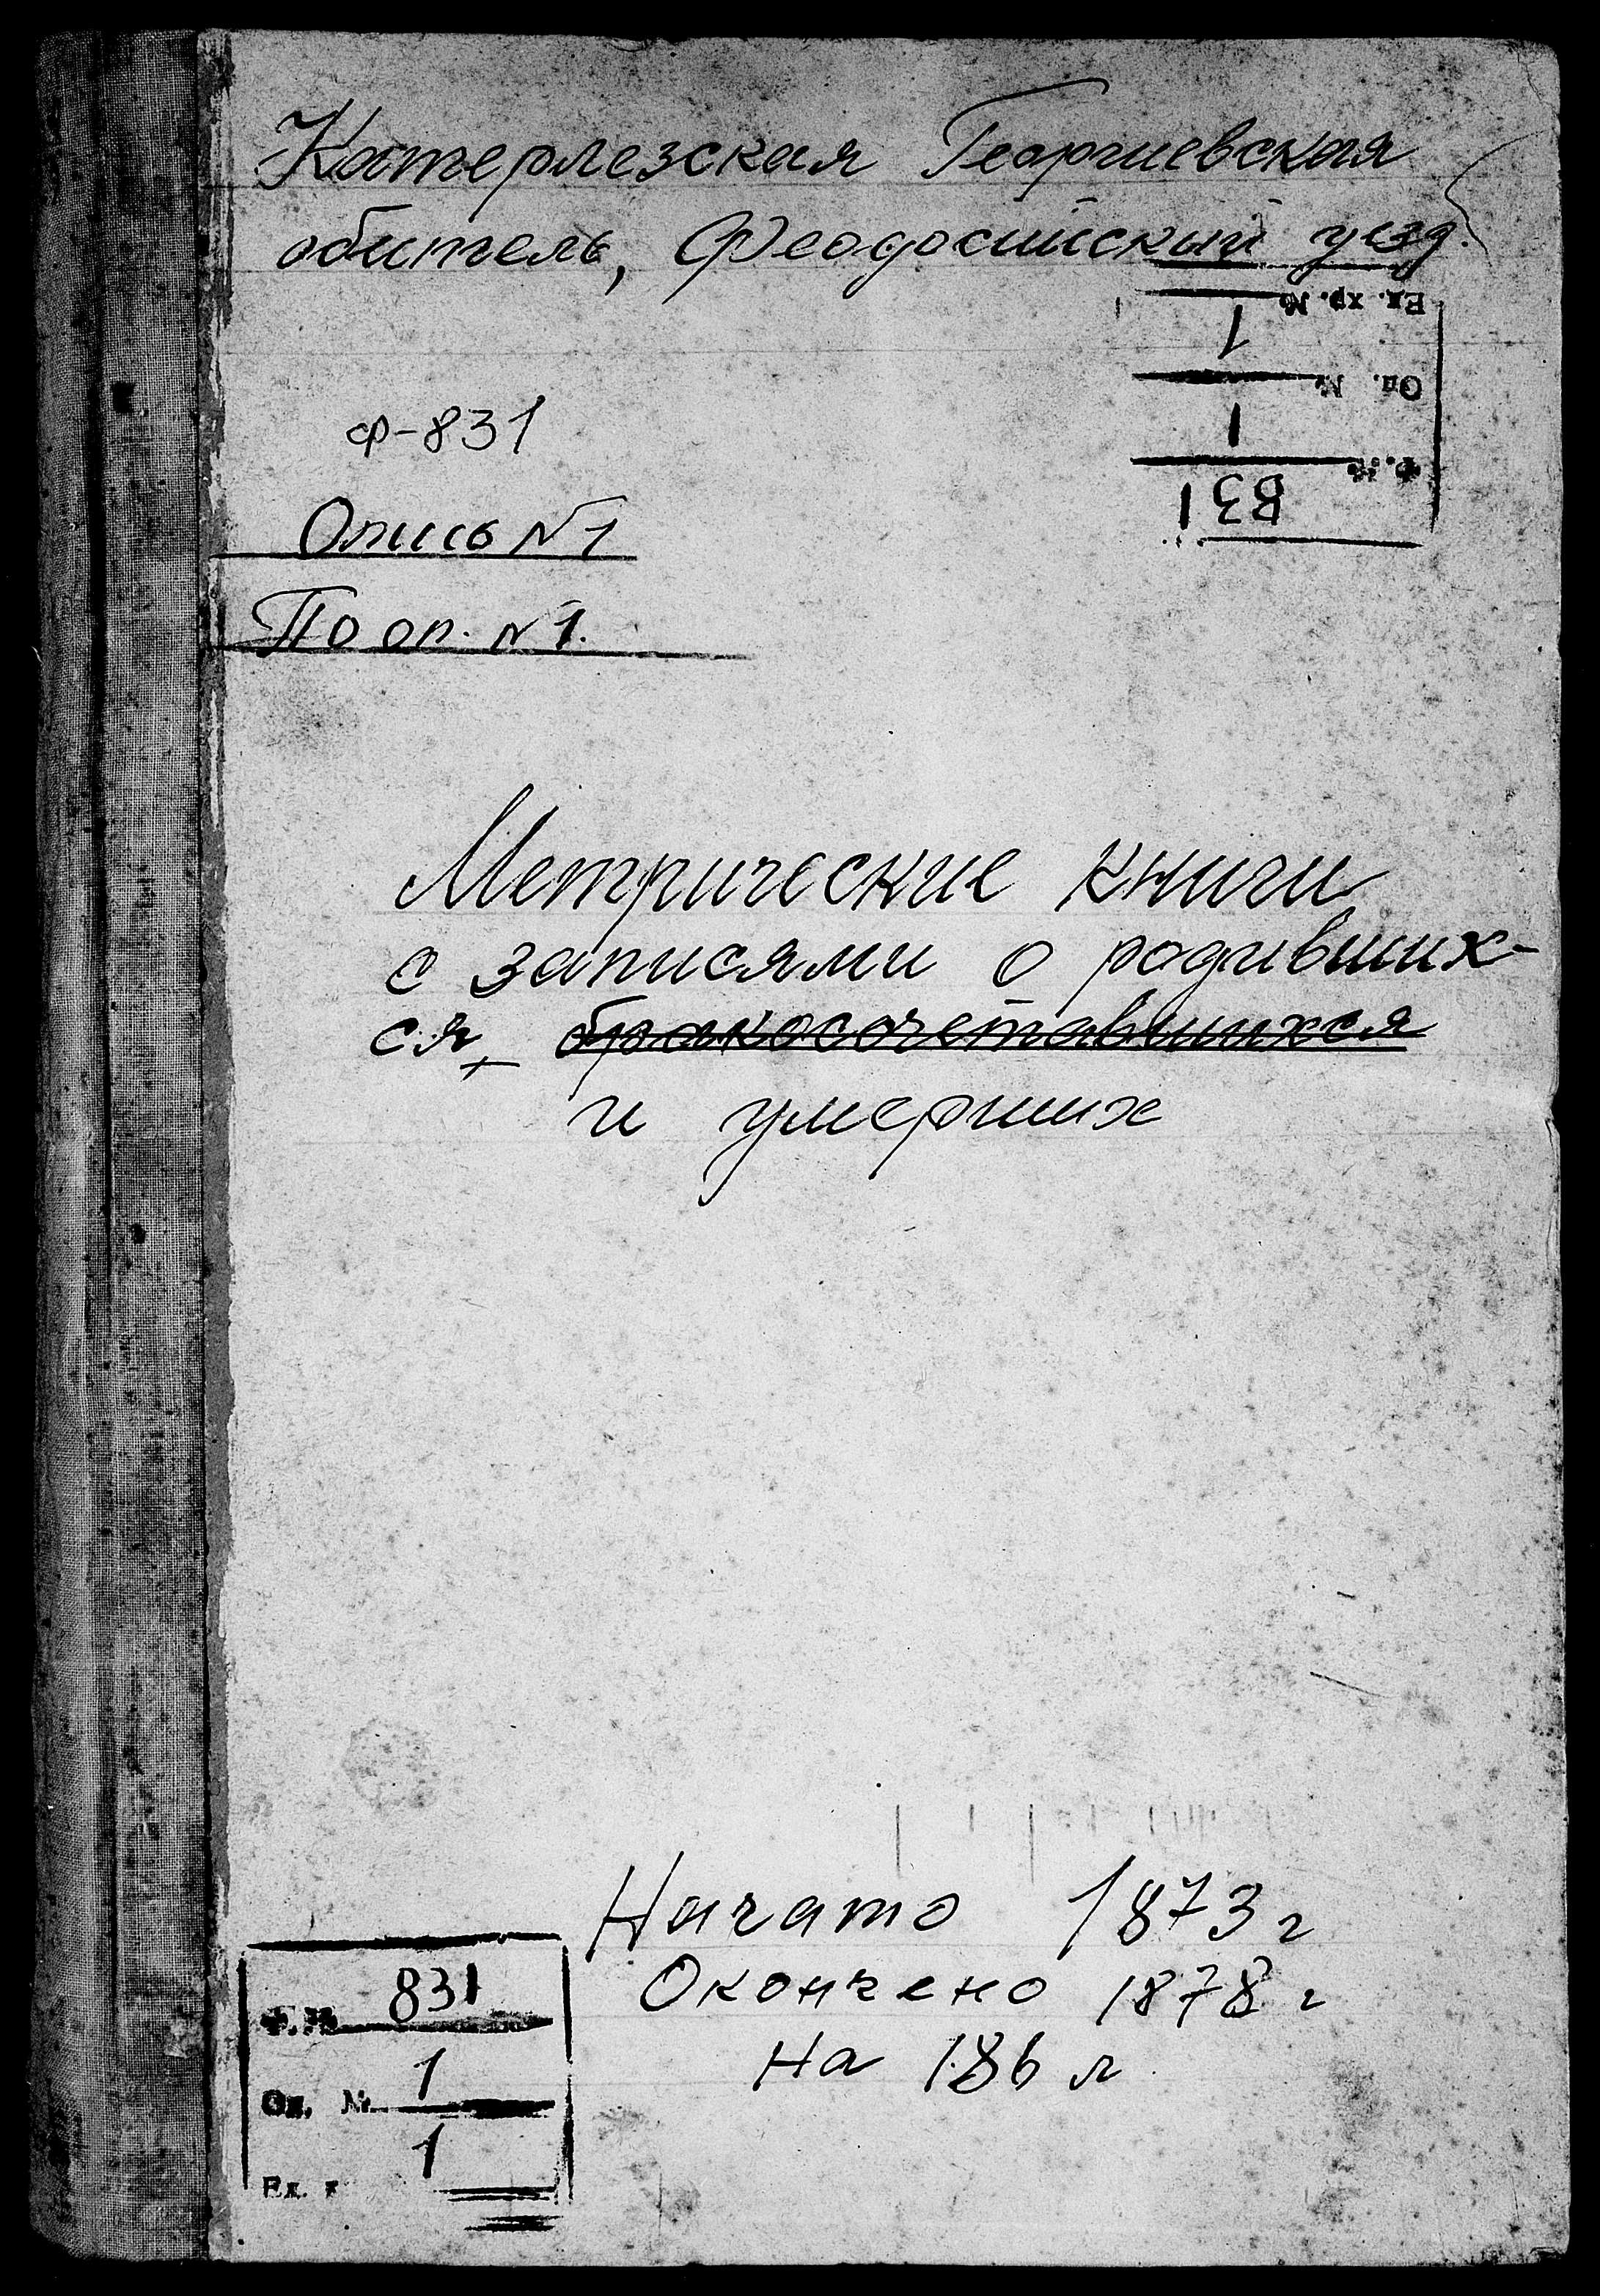 Катерлезская Георгиевская
обитель, Феодосийский уезд.
Ед. хр. №
1
Оп. №
1
Ф. №
831
ф-831
Опись №1
По оп. №1.
Метрические книги
с записями о родивших-
ся, бракосочетавшихся
и умерших
Начато 1873 г
Окончено 1878 г
на 186 л
Ф. № 831
Оп. № 1
Ед. х 1